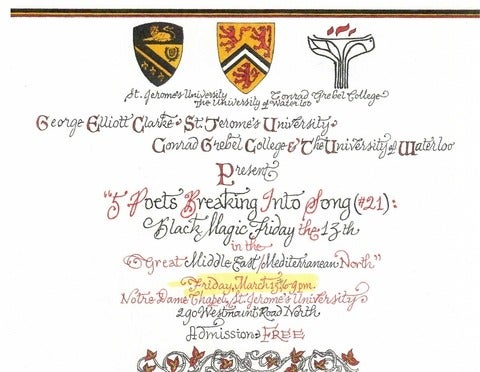 St. Jerome's University
The University of Waterloo
Conrad Grebel College
George Elliott Clarke St. Jerome's University
Conrad Grebel College & The University of Waterloo
Present
"5 Poets Breaking Into Song (#21):
Black Magic Friday the 13th
in the
"Great Middle East/Mediterranean North"
Friday, March 13, 6-9pm.
Notre Dame Chapel, St. Jerome's University
290 Westmount Road North
Admission: FREE